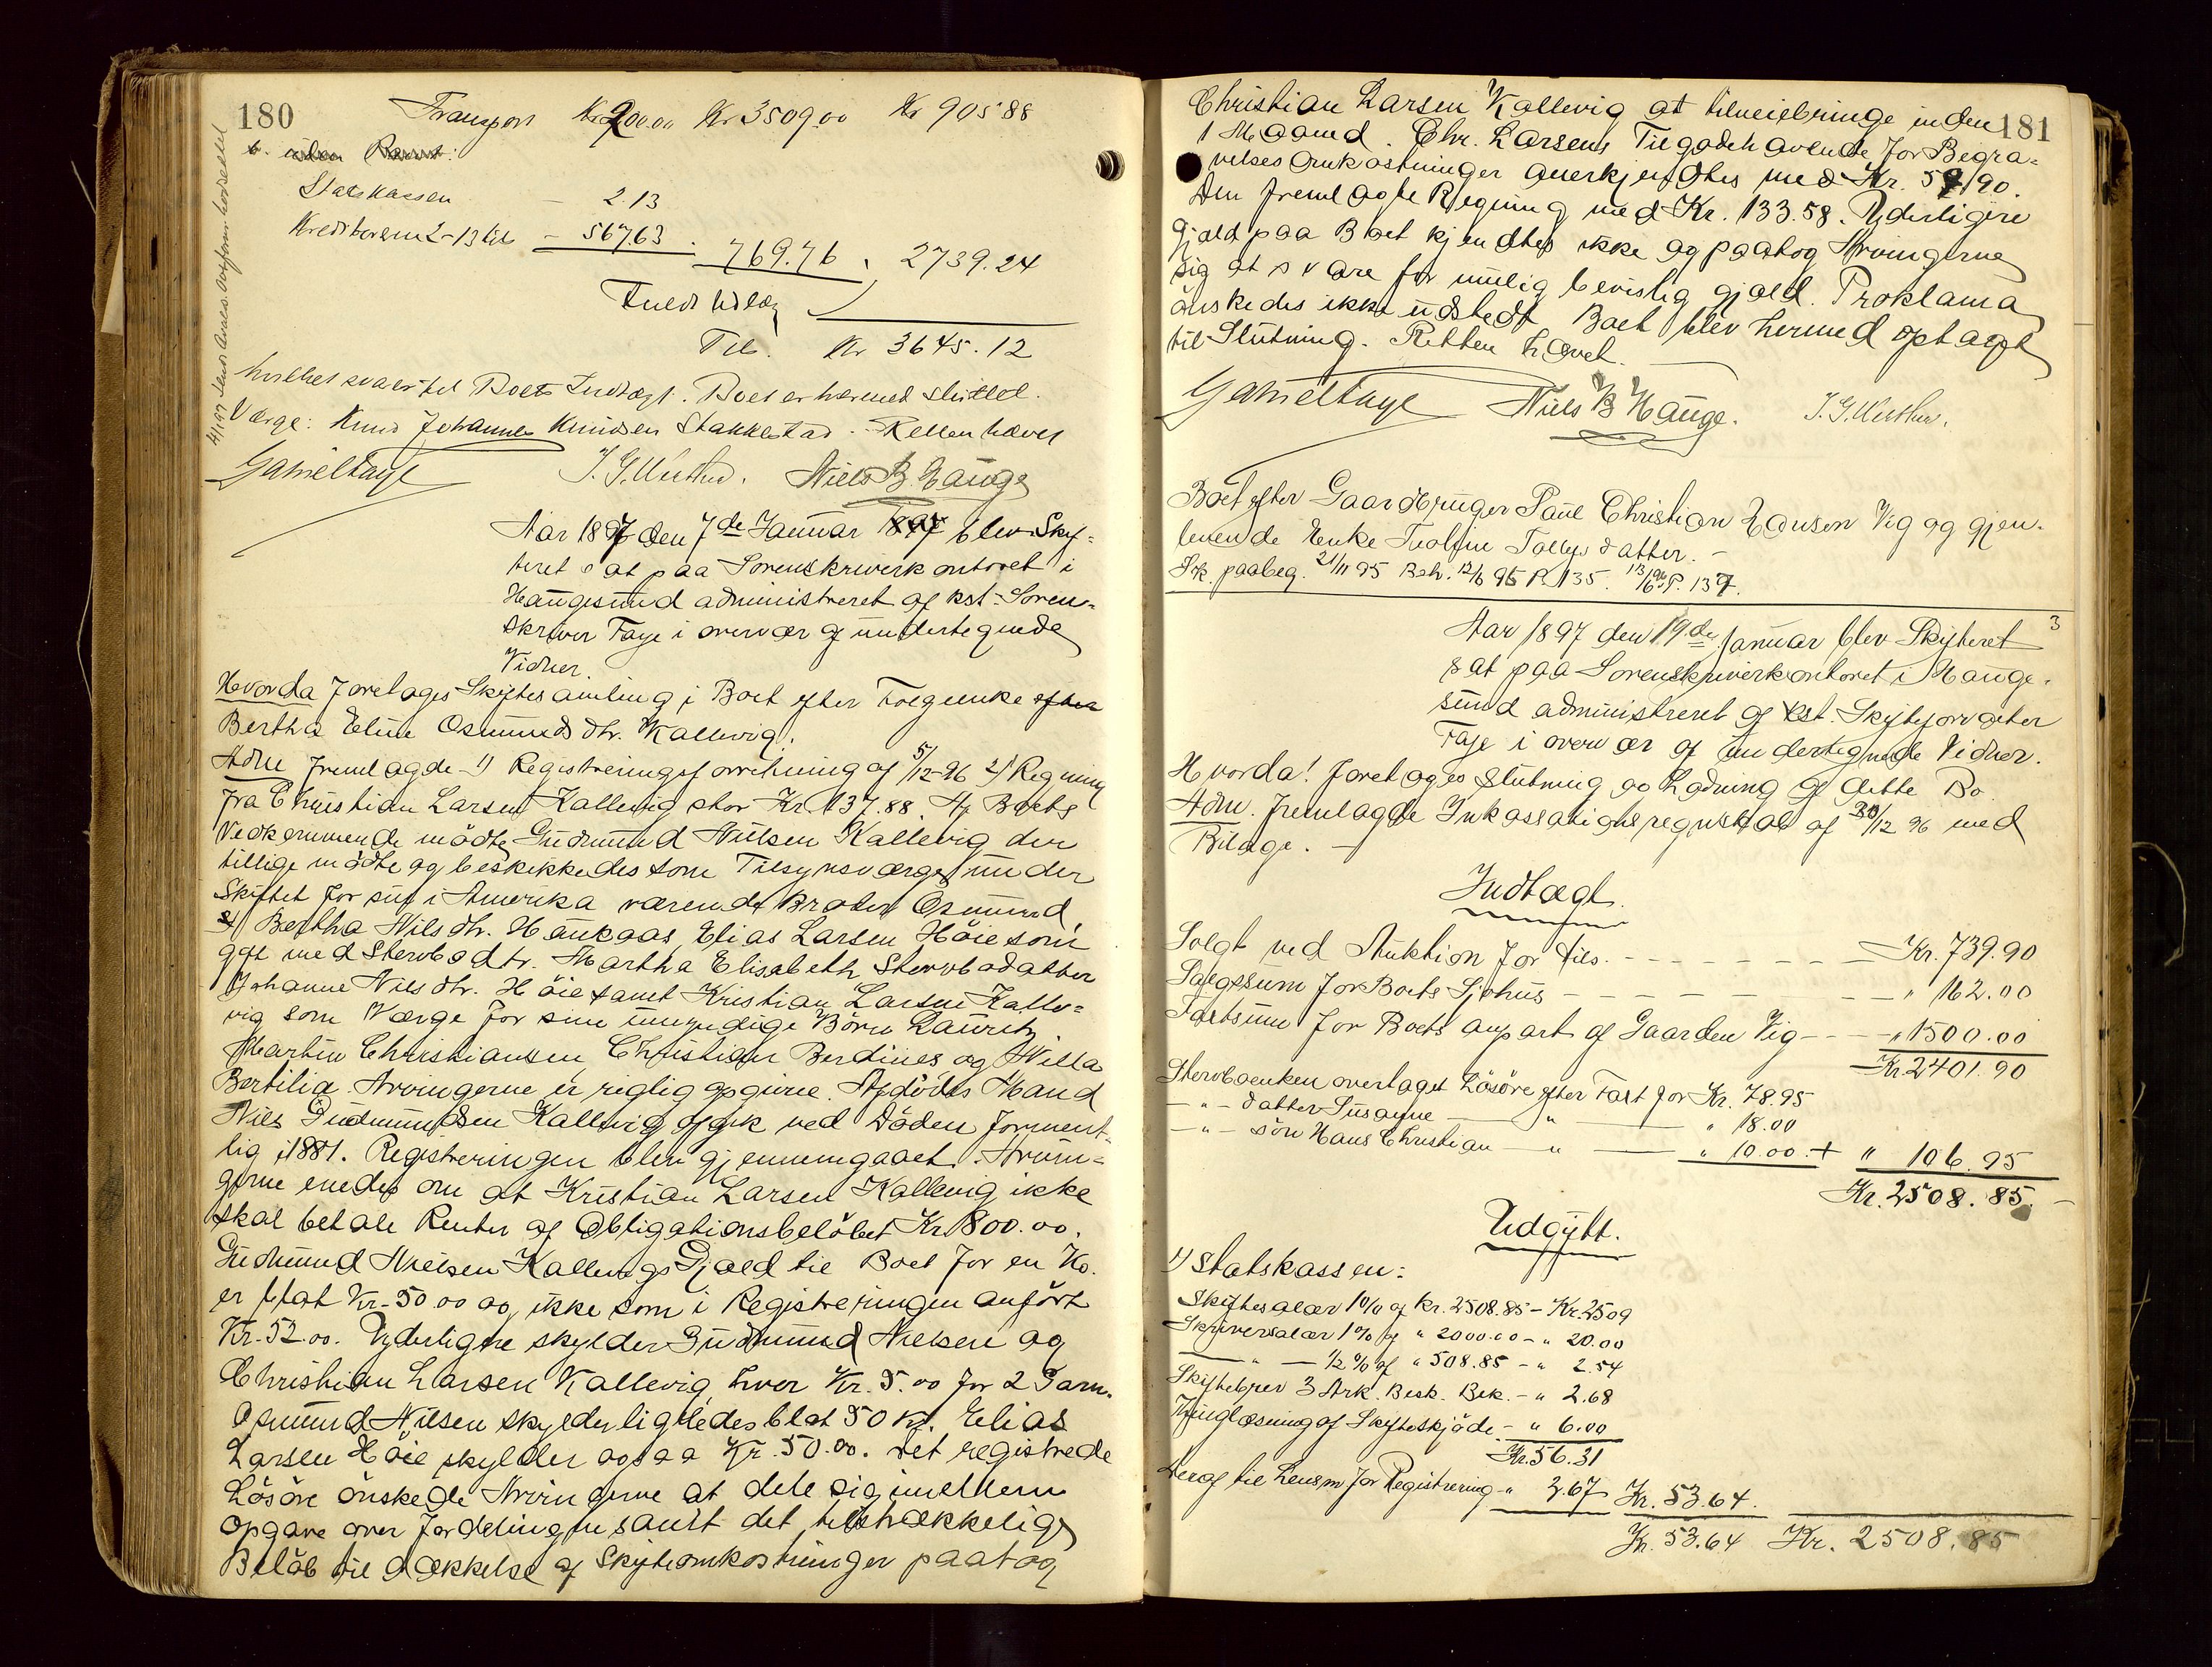 180
Transport Kr 200.00 Kr 3509.00 Kr 905 88
b. uden Persort:
Statskassen - 2.13
Kreditorerne 2-13 tils - 567.63 . 769.76 , 2739.24
Fuldt Udlæg
Til. Kr 3645.12
hvilket svarer til Boets Indtægt. Boet er hermed sluttet.
Værge: Knud Johannes Knudsen Stakkestad. Retten hævet
Gamelfaye J. G. Wetthus. Niels B. Hauge
Aar 1897 den 7de Januar blev Skif-
teret sat paa Sorenskriverkontoret i
Haugesund administreret af kst. Soren-
skriver Faye i overvær af undertegnede
Vidner.
Hvorda foretages Skiftesamling i Boet efter Føgeenke efter
Bertha Eline Osmundsdtr. Kallevig.
Adm fremlagde 1) Registreringsforretning af 5/12-96 2) Regning
fra Christian Larsen Kallevig stor Kr. 137.88. Af Boets
Vedkommende mødte Gudmund Nilsen Kallevig der
tillige mødte og beskikkedes som Tilsynsværge under
Skiftet for sin i Amerika værende Broder Osmund,
Bertha Nilsdtr. Haukaas, Elias Larsen Høie som
gift med Stervbodtr. Martha Elisabeth Stervbodatter
Johanne Nilsdtr. Høie samt Kristian Larsen Kalle-
vig som Værge for sine umyndige Børn Lauritz
Martin Christiansen, Christian Berdines og Willa
Bertilia. Arvingerne er rigtig opgivne. Afdødes Mand
Nils Gudmundsen Kallevig afgik ved Døden forment-
lig i 1881. Registreringen blev gjennemgaaet. Arvin-
gerne enedes om at Kristian Larsen Kallevig ikke
skal betale Renter af Obligationsbeløbet Kr 800.00.
Gudmund Nielsen Kallevigs Gjæld til Boet for en Ko
er blot Kr. 50.00 og ikke som i Registreringen anført
Kr. 52.00. Yderligere skylder Gudmund Nielsen og
Christian Larsen Kallevig hver Kr. 5.00 for 2 Garn.
Osmund Nilsen skylder ligeledes blot 50 Kr. Elias
Larsen Høie skylder ogsaa Kr. 50.00. Det registrede
Løsøre ønskede Arvingerne at dele sig imellem
Opgave over Fordelingen samt det tilstrækkelige
Beløb til Dækkelse af Skifteomkostninger paatog
181
Christian Larsen Kallevig at tilveiebringe inden
1 Maaned. Chr. Larsens Tilgodehavende for Begra-
velsesomkostninger anerkjendtes med Kr. 57.90.
Den fremlagte Regning med Kr. 133.58. Yderligere
Gjæld paa Boet kjendtes ikke og paatog Arvingerne
sig at svare for mulig bevislig gjæld. Proklama
ønskedes ikke udstedt. Boet blev hermed optaget
til Slutning. Retten hævet.
Gamelfaye Niels B Hauge. J. G. Wetthus.
Boet efter Gaardbruger Paul Christian Hansen Vig og gjen-
levende Enke Thaline Tollefsdatter.
Srk. paabeg. 21/11 95 Beh. 12/6 96 P. 135. 13/6 96 P. 137.
3
Aar 1897 den 19de Januar blev Skifteret
sat paa Sorenskriverkontoret i Hauge-
sund administreret af kst. Skifteforvalter
Faye i overvær af undertegnede Vidner.
Hvorda! foretages Slutning og Lodning af dette Bo
Adm. fremlagde Inkassationsregnskab af 30/12 96 med
Bilage.
Indtægt.
Solgt ved Auktion for tils. - - - Kr. 739.90
Salgssum for Boets Sjøhus - - - " 162.00
Taxtsum for Boets anpart af Gaarden Vig - - - " 1500.00
Kr. 2401.90
Stervboenken overtaget Løsøre efter Taxt for Kr. 78.95
- " - datter Susanne - " - " 18.00
- " - søn Hans Christian - " - " 10.00 + " 106.95
Kr. 2508.85.
Udgift.
1) Statskassen:
Skiftesalær 1% af Kr. 2508.85 - Kr. 25.09
Skriversalær 1% af " 2000.00 - " 20.00
- " - 1/2 % af " 508.85 - " 2.54
Skiftebrev 3 Ark. Besk. Bek. - " 2.68
Thinglæsning af Skifteskjøde - " 6.00
Kr. 56.31
Deraf til Lensm for Registrering " 2.67 Kr. 53.64.
Kr. 53.64 Kr. 2508.85